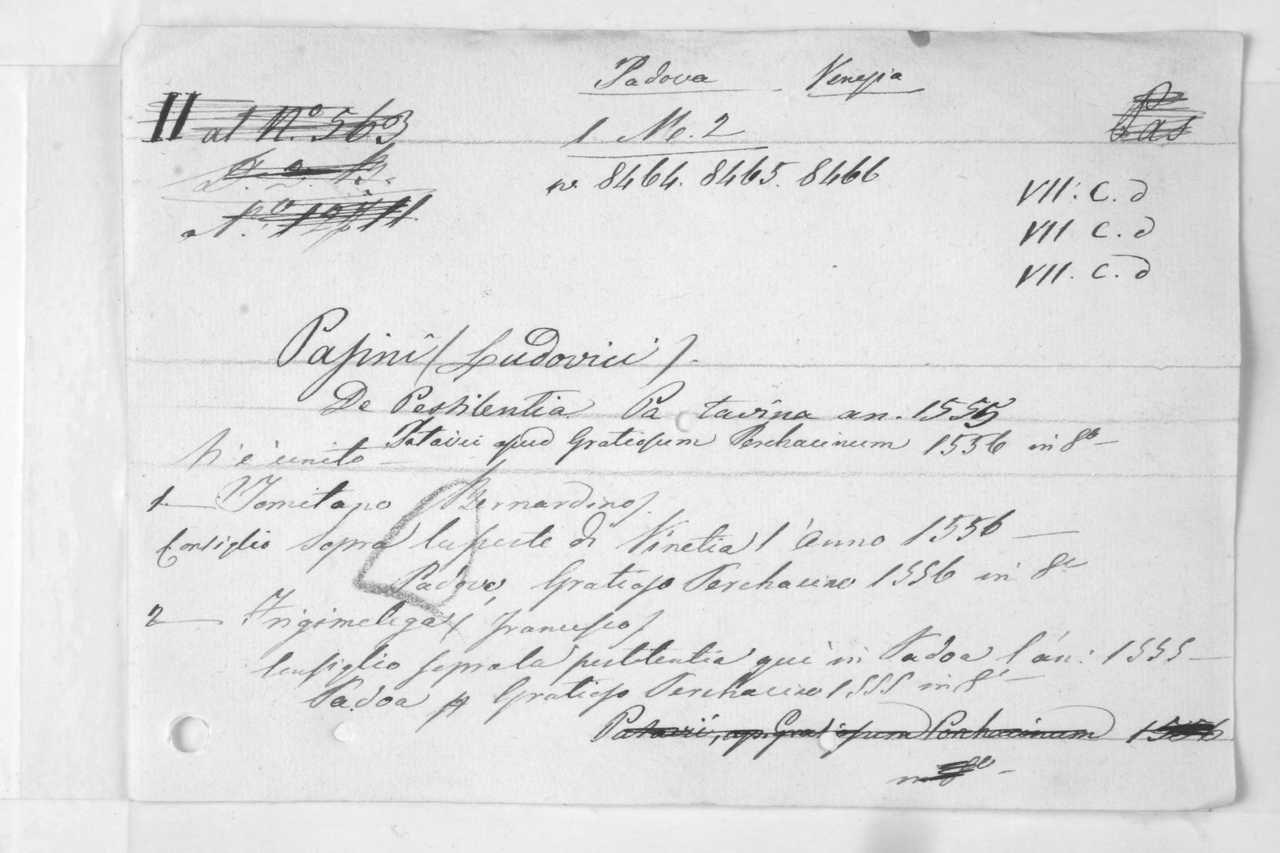 Padova Venezia
II al N.º 563
Pas
1. M. 2
nº. 8464. 8465. 8466
VII: C. d
VII. C. d
VII. C. d
Pasini (Ludovici).
De Pestilentia Patavina an. 1555
Patavii apud Gratiosum Perchacinum 1556 in 8º
Vi è unito
1 — Tomitano (Bernardino).
Consiglio sopra la peste di Vinetia l'anno 1556 —
Padova, Gratioso Perchacino 1556 in 8º
2 — Frigimeliga (Francesco)
Consiglio sopra la pestilentia qui in Padoa l'án: 1555 —
Padoa p Gratioso Perchacino 1555 in 8º —
Patavii, ap. Gratiosum Perchacinum 1556
in 8º —